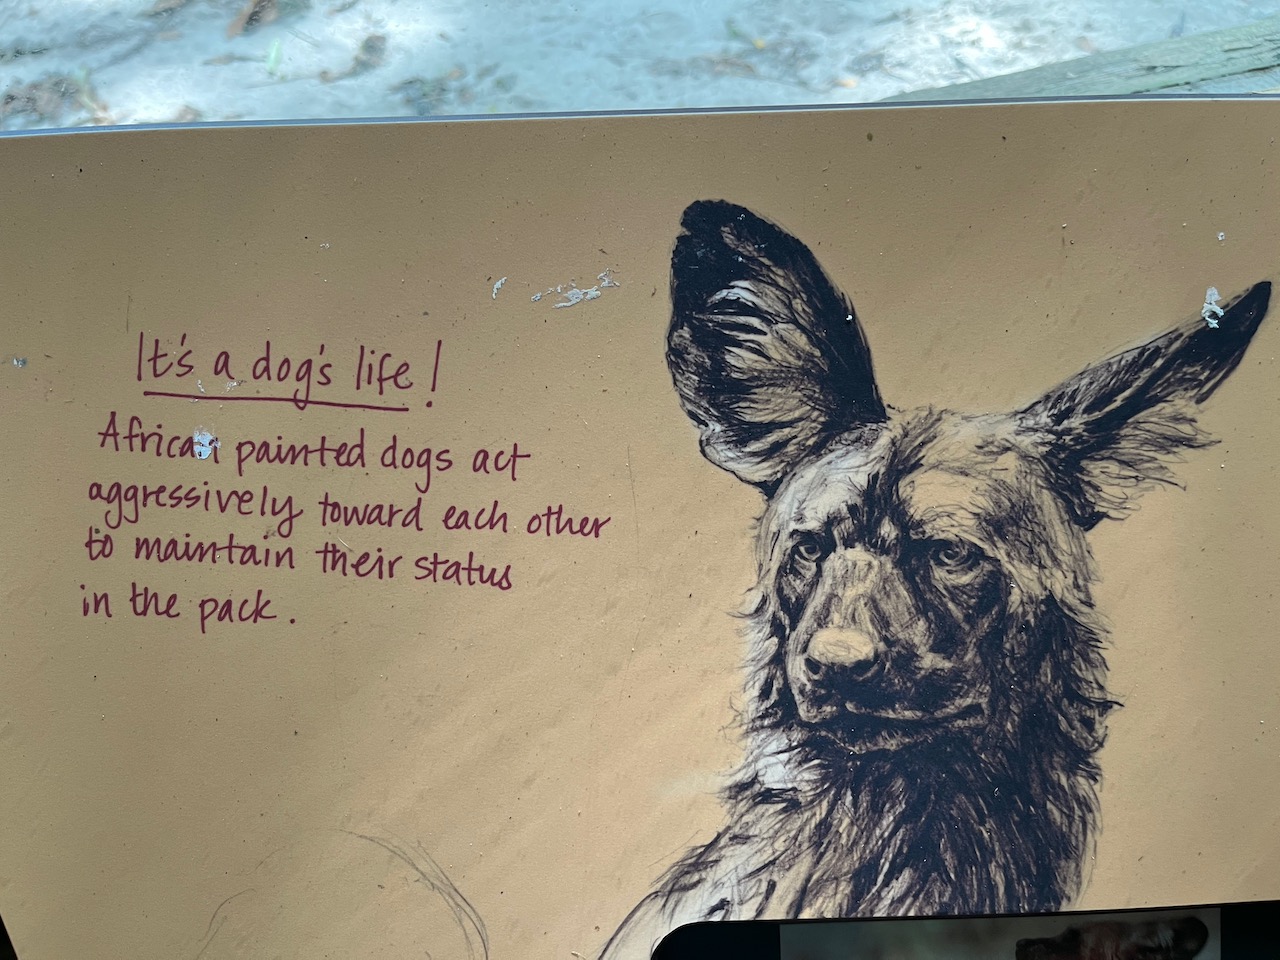 It's a dog's life!
African painted dogs act
aggressively toward each other
to maintain their status
in the pack.